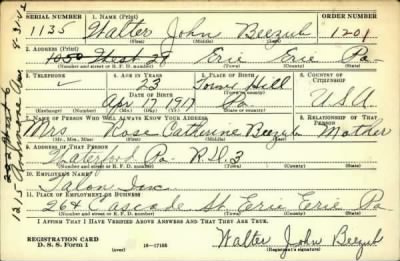 SERIAL NUMBER 1. NAME (Print) ORDER NUMBER
1135 Walter John Beezub 1201
(First) (Middle) (Last)
2. ADDRESS (Print)
1050 West 29 Erie Erie Pa
(Number and street or R. F. D. number) (Town) (County) (State)
3. TELEPHONE 4. AGE IN YEARS 5. PLACE OF BIRTH 6. COUNTRY OF CITIZENSHIP
23 Hill
DATE OF BIRTH
Apr 17 1917 Pa U.S.A.
(Mo.) (Day) (Yr.) (State or country)
7. NAME OF PERSON WHO WILL ALWAYS KNOW YOUR ADDRESS 8. RELATIONSHIP OF THAT PERSON
Mrs Rose Catherine Beezub Mother
(Mr., Mrs., Miss) (First) (Middle) (Last)
9. ADDRESS OF THAT PERSON
Waterford Pa R.D.3
(Number and street or R. F. D. number) (Town) (County) (State)
10. EMPLOYER'S NAME
Talon Inc
11. PLACE OF EMPLOYMENT OR BUSINESS
264 Cascade St. Erie Erie Pa
(Number and street or R. F. D. number) (Town) (County) (State)
I AFFIRM THAT I HAVE VERIFIED ABOVE ANSWERS AND THAT THEY ARE TRUE.
REGISTRATION CARD
D. S. S. Form 1 (over) 16—17105 Walter John Beezub
(Registrant's signature)